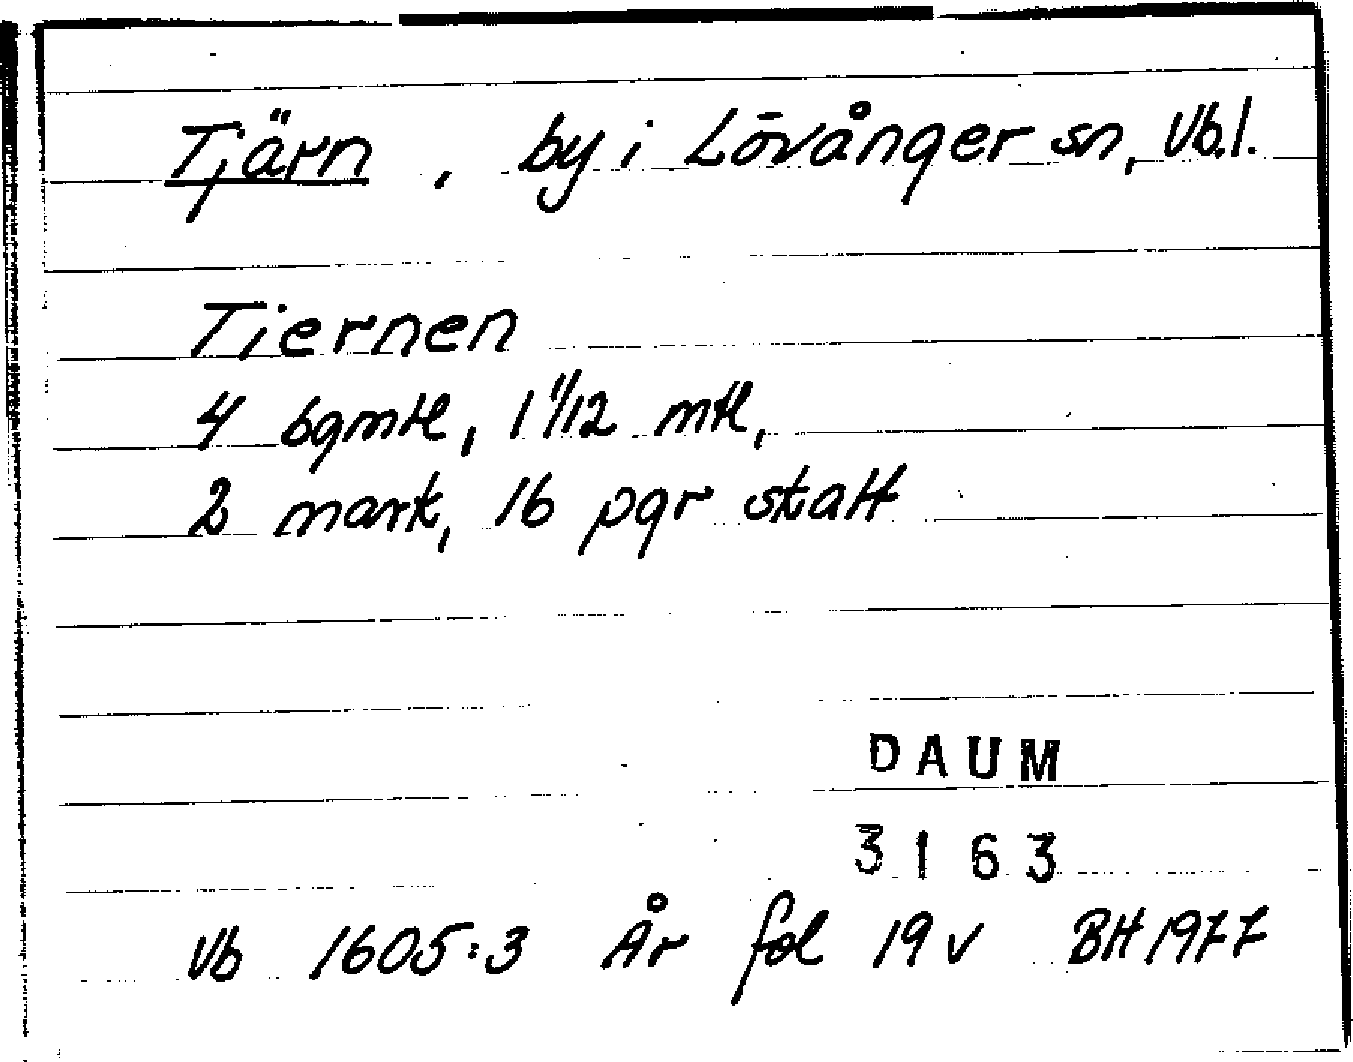 Tjärn, by i Lövånger sn, Vb.l.
Tiernen
4 bgmtl, 1 11/12 mtl,
2 mark, 16 pgr skatt
DAUM
3163
Vb 1605:3 År fol 19 v BH 1977